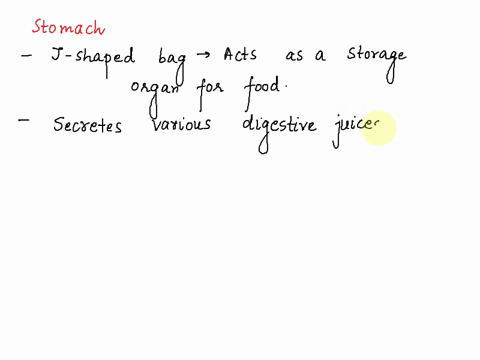 Stomach
- J-shaped bag → Acts as a storage
organ for food.
- Secretes various digestive juices